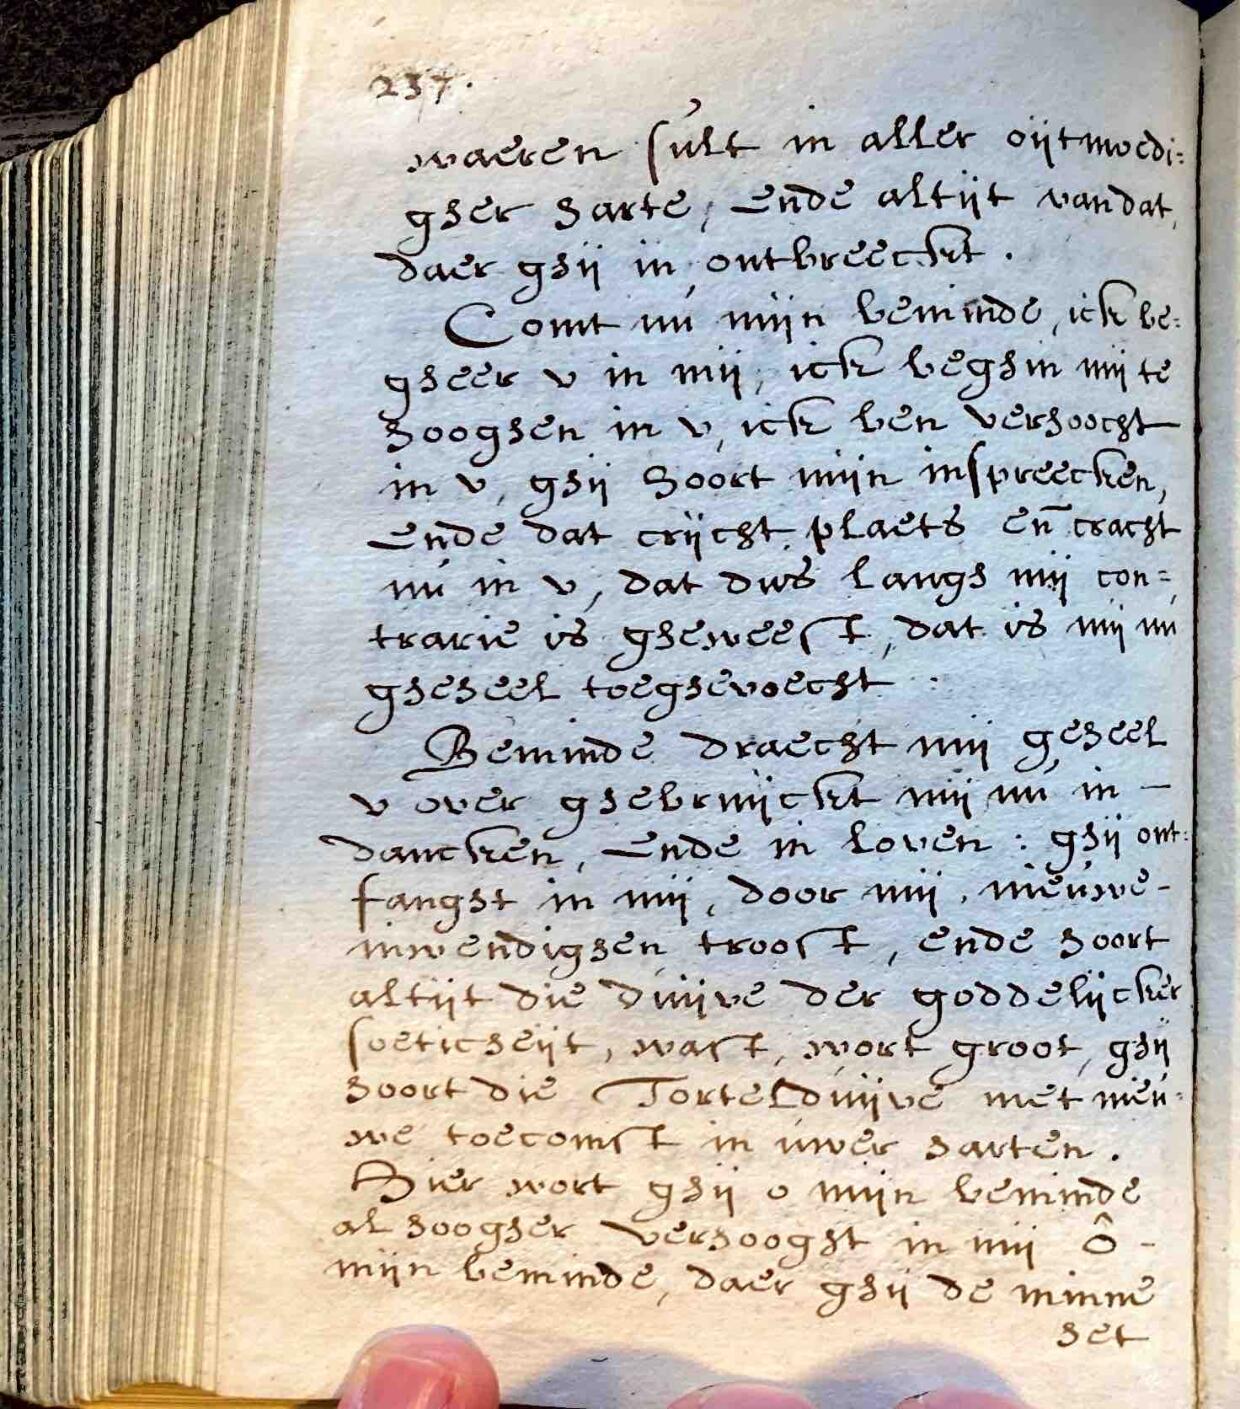 237.
waeren sult in aller oijtmoedi:
gher harte, ende altijt van dat,
daer ghij in ontbreeckt.
Comt nú mijn beminde, ick be:
gheer v in mij, ick beghin mij te
hooghen in v, ick ben verhoocht
in v, ghij hoort mijn inspreecken,
ende dat crijcht plaets en̄ cracht
nú in v, dat dus langh mij con=
trarie is gheweest, dat is mij nú
gheheel toeghevoecht :
Beminde draecht mij geheel
v over ghebruijckt mij nú in –
dancken, ende in loven : ghij ont:
fanght in mij, door mij, nieúwe-
inwendighen troost, ende hoort
altijt die duijve der goddelijcker
soeticheijt, wast, wort groot, ghij
hoort die Tortelduijve met nieú:
we toecomst in úwer harten.
Hier wort ghij o mijn beminde
al hoogher verhooght in mij ô -
mijn beminde, daer ghij de minne
het